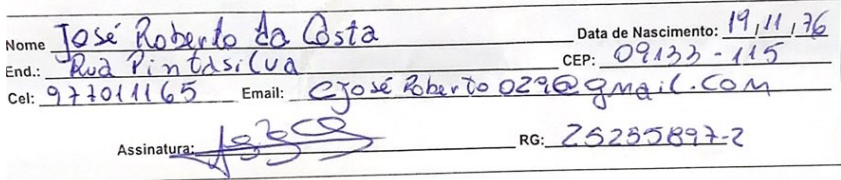 Nome José Roberto da Costa Data de Nascimento: 19/11/76
End.: Rua Pintasilva CEP: 09133-115
Cel: 977011165 Email: cjoséRoberto029@gmail.com
Assinatura: RG: 25235897-2